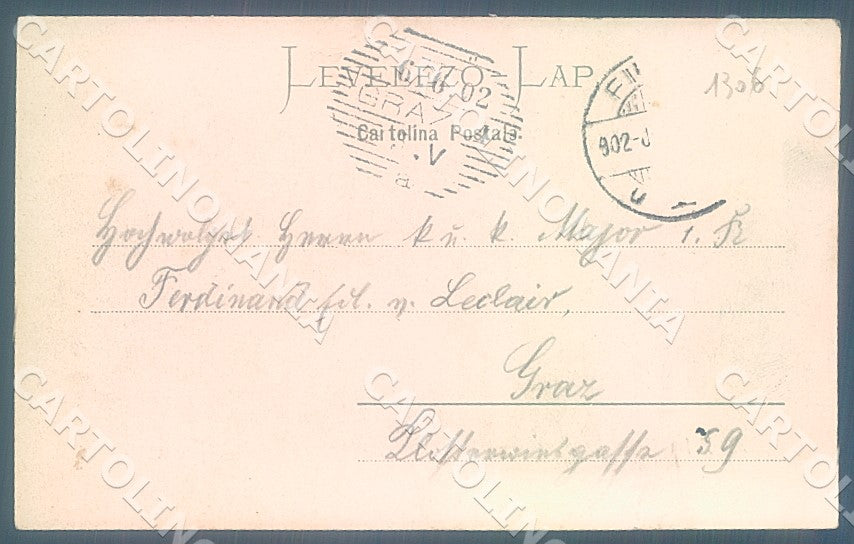 LEVELEZŐ-LAP
1306
Cartolina Postale.
6 6 02
GRAZ
V
a
902-J
Hochwolgeb. Herrn k u. k. Major i. R
Ferdinand Edl. v. Leclair,
Graz
Klosterwiesgasse 59
CARTOLINOMANIA
CARTOLINOMANIA
CARTOLINOMANIA
CARTOLINOMANIA
CARTOLINOMANIA
CARTOLINOMANIA